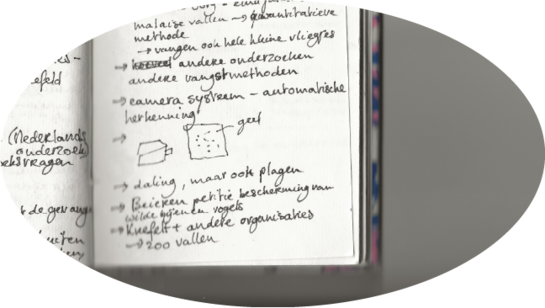 malaise vallen → kwantitatieve
methode
→ vangen ook hele kleine vliegjes
→ andere onderzoeken
andere vangstmethoden
→ camera systeem - automatische
herkenning
→
geel
→ daling, maar ook plagen
→ Beieren petitie bescherming van
wilde bijen en vogels
→ Krefeld + andere organisaties
→ 200 vallen
efeld
(Nederlands
onderzoek)
eksvragen
t de gevang